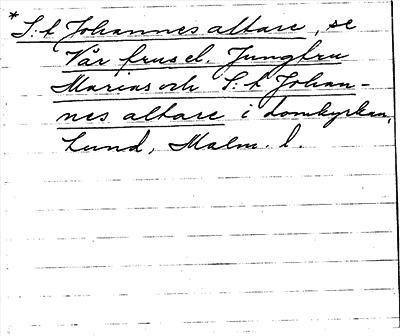 * S:t Johannes altare, se
Vår frus el. Jungfru
Marias och S:t Johan-
nes altare i domkyrkan,
Lund, Malm. l.